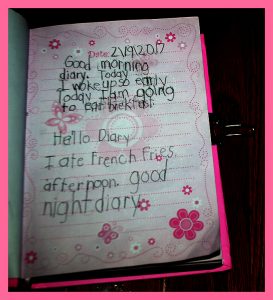 Date: 2\9\2017
Good morning
diary. Today
I woke up so early
Today I am going
to eat brekfast.
Hello Diary
I ate French Fries
afternoon. good
night diary